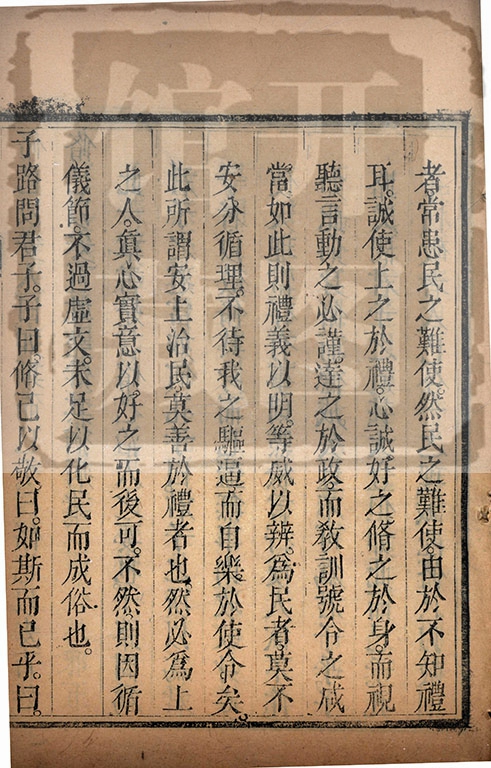 者常患民之難使。然民之難使。由於不知禮
耳。誠使上之於禮。心誠好之脩之於身。而視
聽言動之必謹。達之於政。而敎訓號令之咸
當。如此則禮義以明。等威以辨。為民者。莫不
安分循理。不待我之驅逼而自樂於使令矣
此所謂安上治民莫善於禮者也。然必為上
之人。眞心實意以好之而後可。不然則因循
儀節。不過虛文。未足以化民而成俗也。
子路問君子。子曰。脩己以敬曰。如斯而已乎。曰。